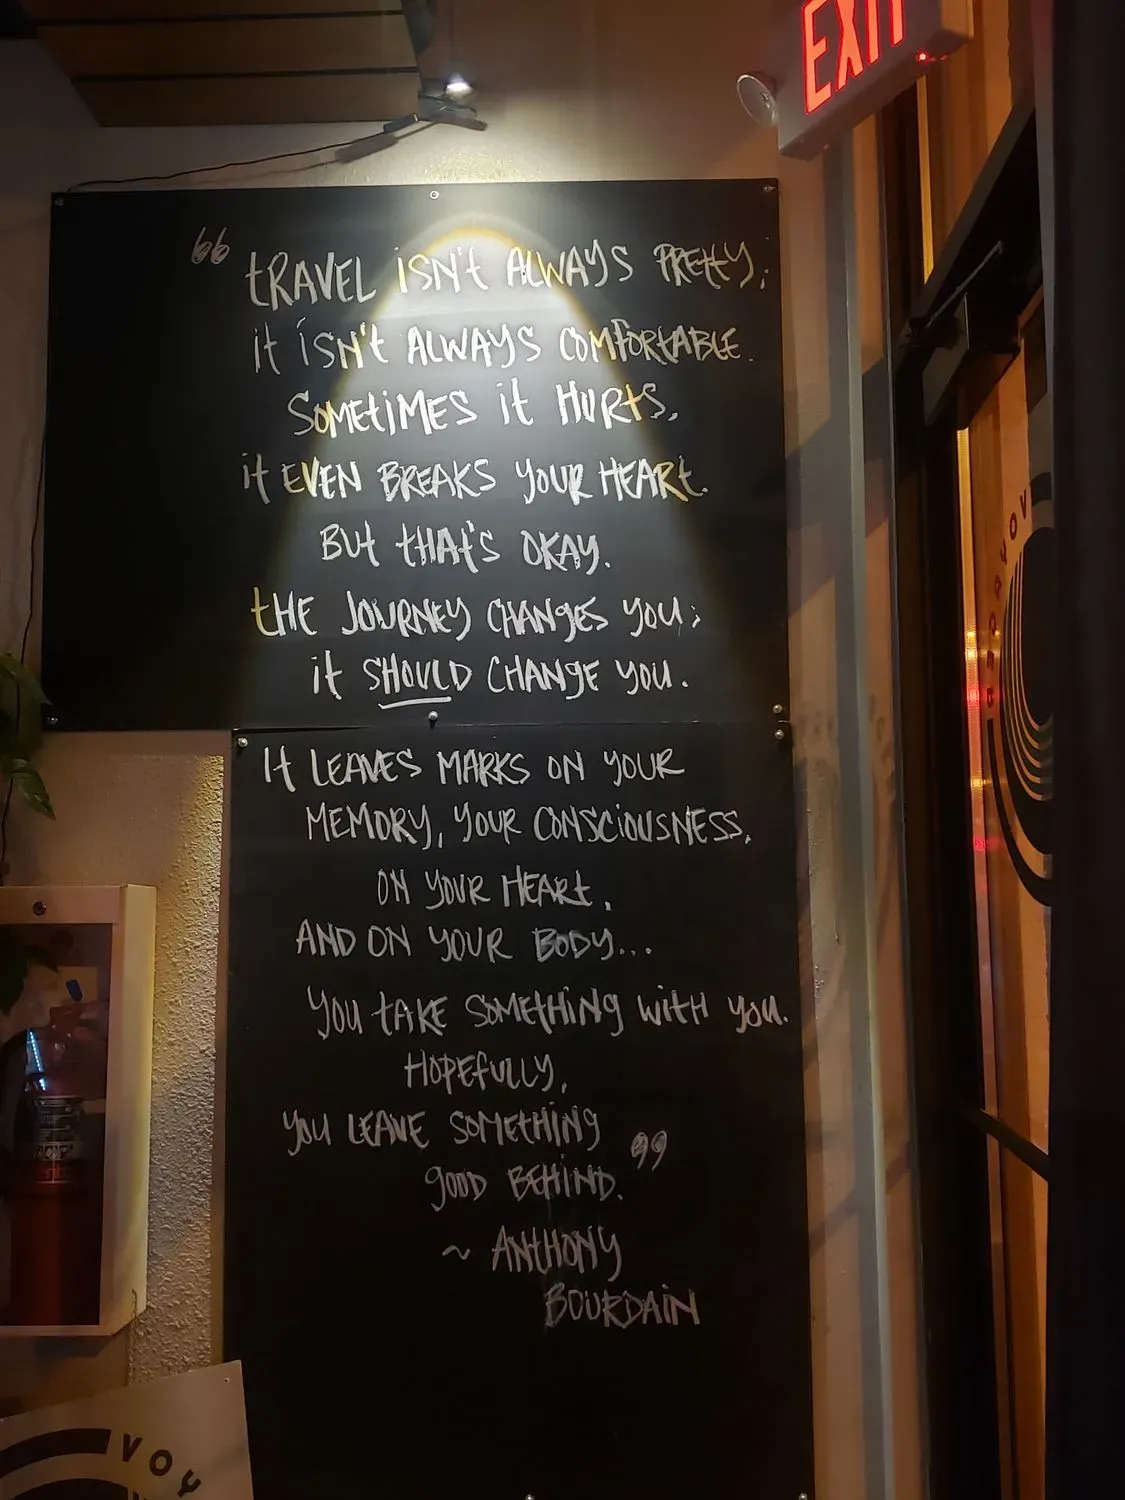 EXIT
“ tRAVEL isn't ALWAYS PREttY;
it isn't ALWAYS COMfORtABLE.
SOMEtiMES it HURtS,
it EVEN BREAKS YOUR HEARt.
BUt tHAt'S OKAY.
tHE JOURNEY CHANgES YOU;
it SHOULD CHANgE YOU.
It LEAVES MARKS ON YOUR
MEMORY, YOUR CONSCIOUSNESS,
ON YOUR HEARt,
AND ON YOUR BODY...
YOU tAKE SOMEtHiNg WitH YOU.
HOPEfULLY,
YOU LEAVE SOMEtHiNg
gOOD BEHiND. ”
~ ANtHONY
BOURDAiN
VOY